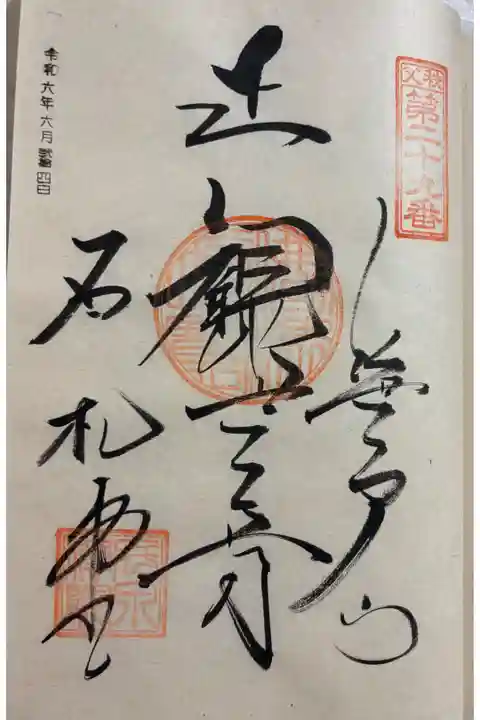 秩父
第二十九番
笹戸山
正觀世音
石札堂
令和六年六月弐拾四日